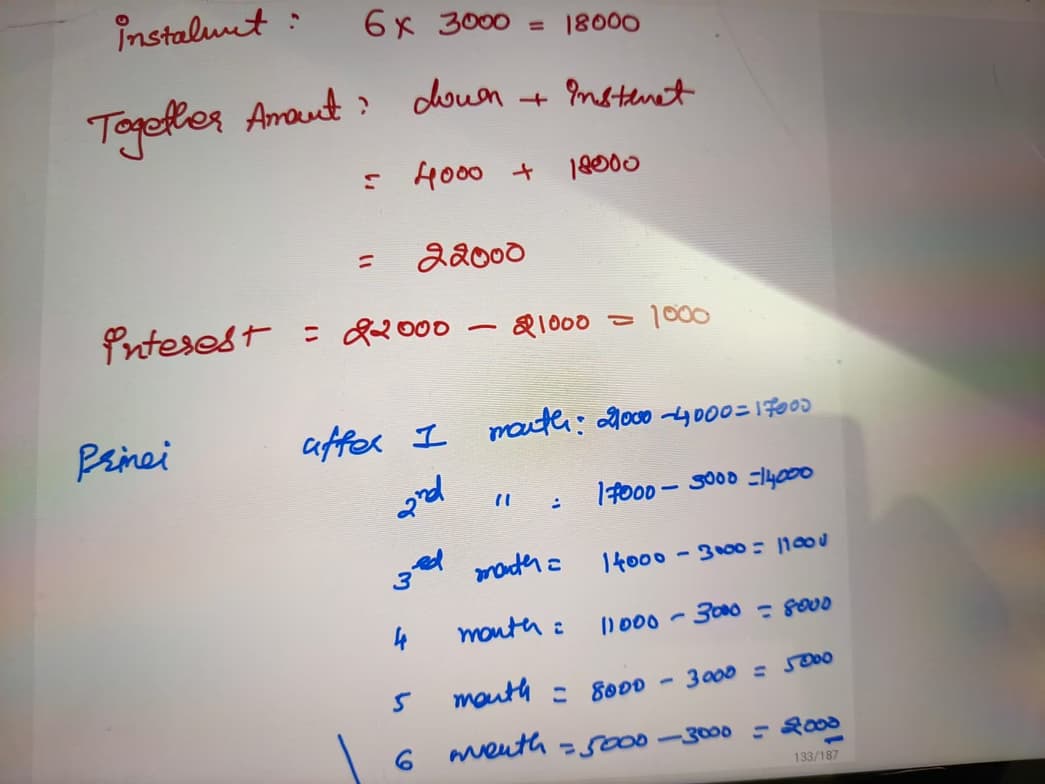 instalmet : 6 x 3000 = 18000
Together Amount : down + Instemet
= 4000 + 18000
= 22000
Interest = 22000 - 21000 = 1000
Princi after I month : 21000 - 4000 = 17000
2nd " : 17000 - 3000 = 14000
3ed month = 14000 - 3000 = 11000
4 month = 11000 - 3000 = 8000
5 month = 8000 - 3000 = 5000
6 month = 5000 - 3000 = 2000
133/187